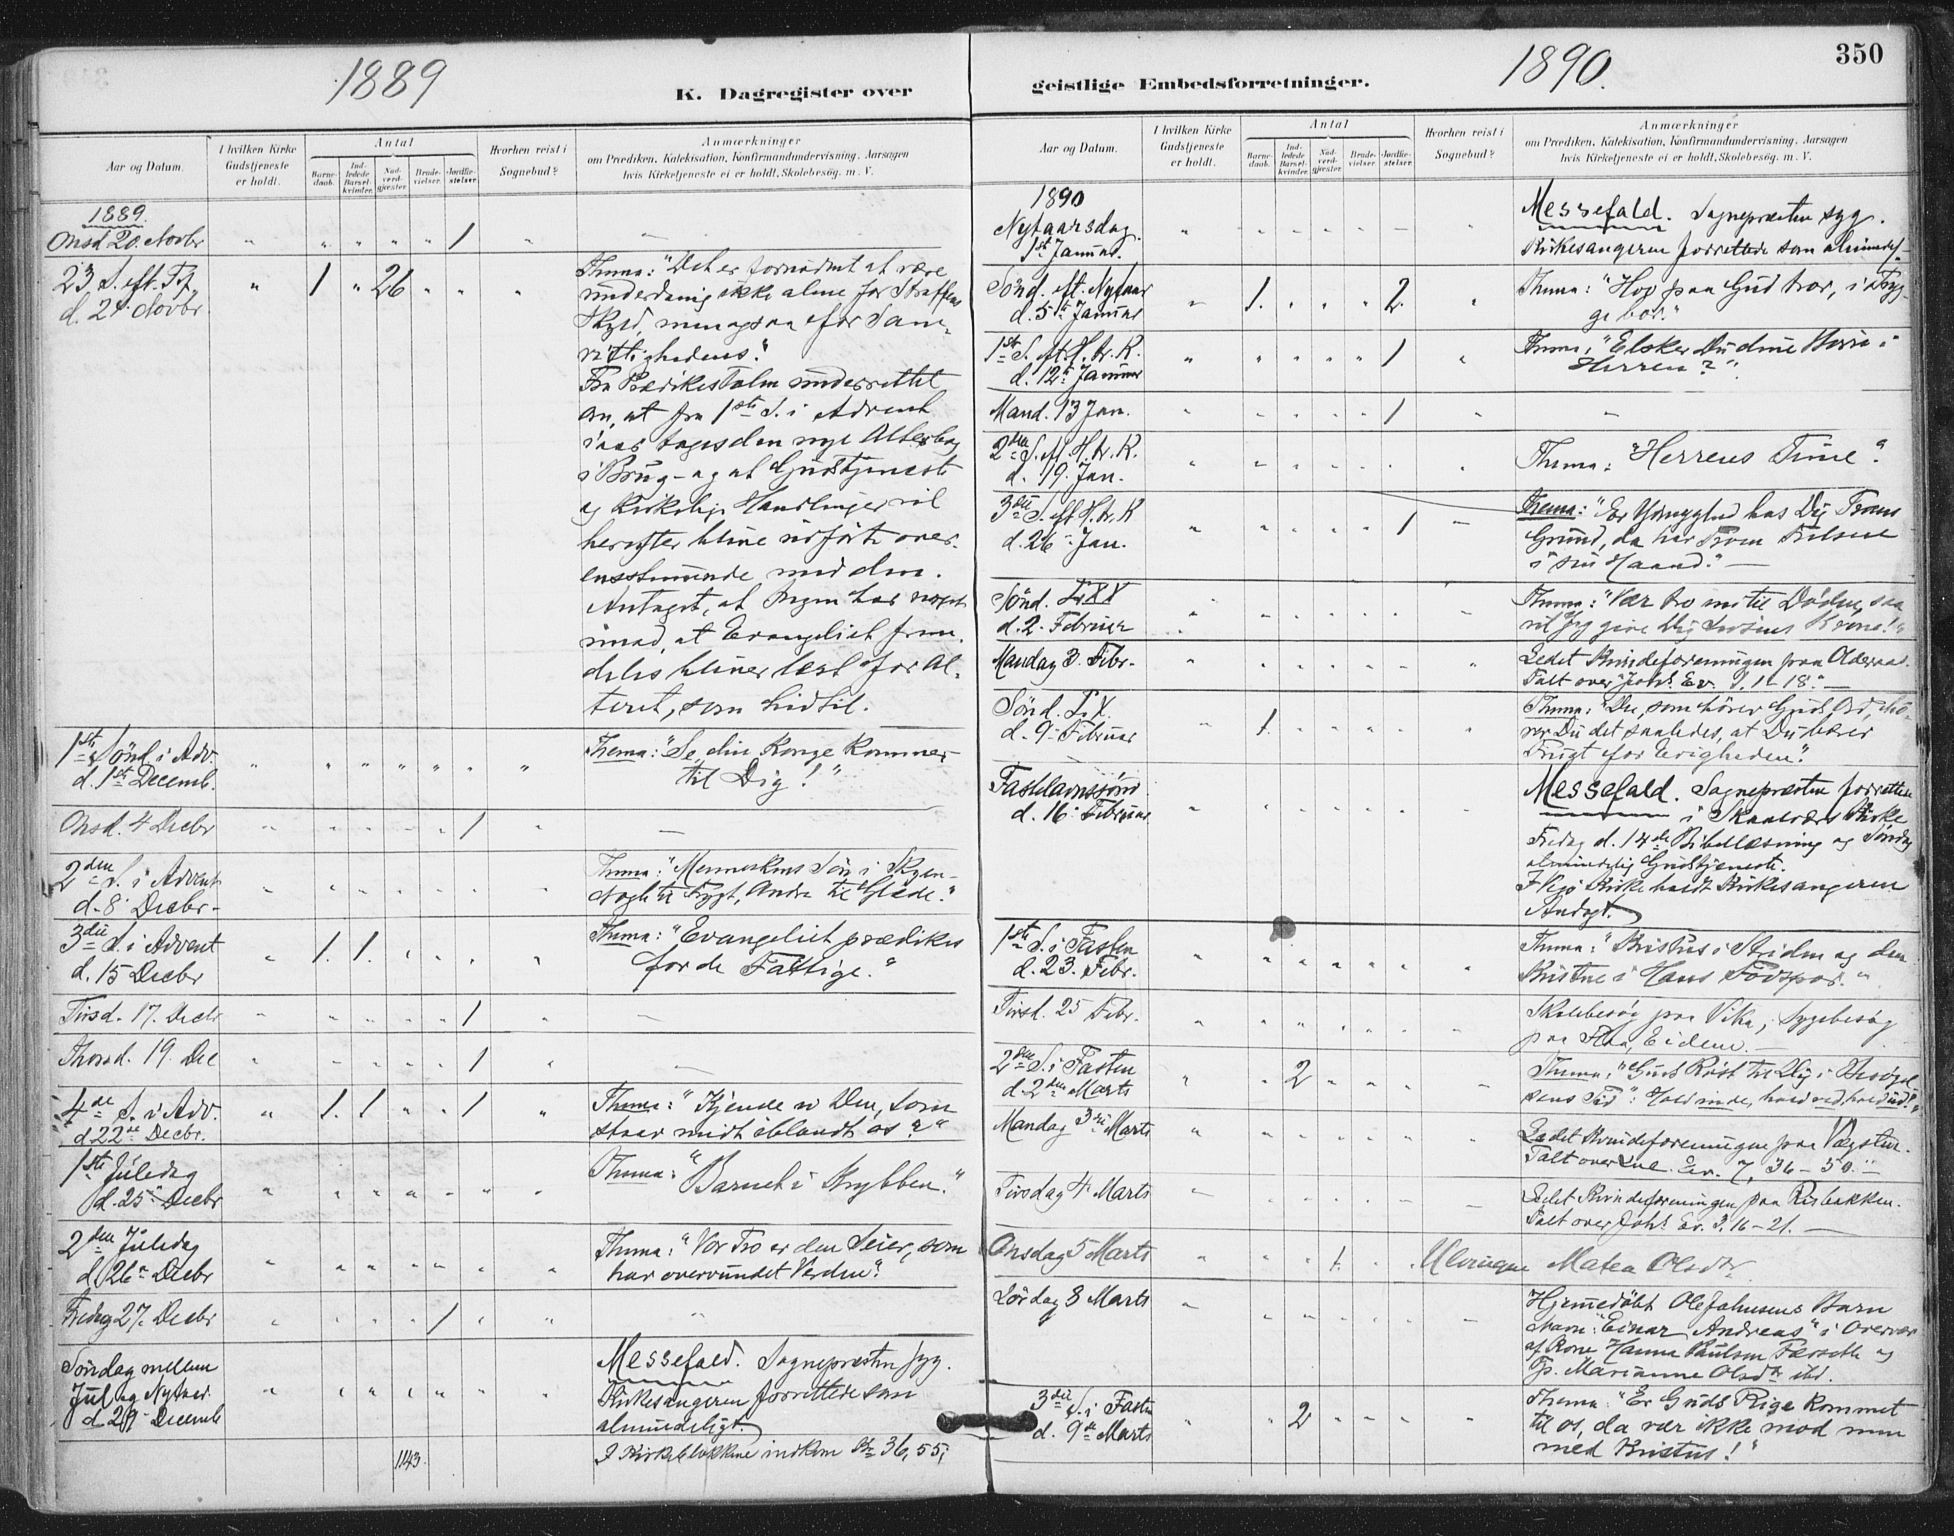 1889
K. Dagregister over
Aar og Datum.
I hvilken Kirke
Gudstjeneste
er holdt.
Antal
Barne-
daab.
Ind-
ledede
Barsel-
kvinder.
Nad-
verd-
gjester.
Brude-
vielser.
Jordfæ-
stelser.
Hvorhen reist i
Sognebud?
Anmærkninger
om Prædiken, Katekisation, Konfirmandundervisning, Aarsagen
hvis Kirketjeneste ei er holdt, Skolebesøg. m. V.
1889.
Onsd 20. Novbr 1
23 S. eft. Tr. 1 26 Thema: "Det er fornødent at være
d. 24. Novbr. underdanig ikke alene for Straffens
Skyld, men ogsaa for Sam-
vittighedens."
Fra Prædikestolen underrettet
om, at fra 1ste S. i Advent
iaar tages den nye Alterbog
i Brug - og at Gudstjeneste
og kirkelige Handlinger vil
herefter blive udført over-
ensstemmende med den.
Antaget, at Ingen har noget
imod, at Evangeliet frem-
deles bliver læst for Al-
teret, som hidtil.
1ste Sønd i Adv. Thema: "Se, din Konge kommer
d. 1ste Decemb. til Dig!"
Onsd. 4 Decbr 1
2den S. i Advent Thema: "Menneskens Søn i Skyen-
d. 8 Decbr - Nogle til Frygt, Andre til Glæde."
3die S. i Advent 1. 1. Thema: "Evangeliet prædikes
d. 15 Decbr for de Fattige."
Tirsd. 17. Decbr 1
Thorsd. 19. Dec 1
4de S. i Adv. 1. 1 1 Thema: "Kjende vi Den, som
d 22de Decbr. staar midt iblandt os?"
1ste Juledag Thema: "Barnet i Krybben."
d. 25 Decbr
2den Juledag Thema: "Vor Tro er den Seier, som
d. 26 Decbr har overvundet Verden."
Fredag 27. Decbr 1
Søndag mellem Messefald. Sognepræsten syg.
Jul og Nytaar Kirkesangeren forrettede som
d 29 Decemb almindeligt.
1143. I Kirkeblokkene indkom Kr 36,55;
geistlige Embedsforretninger.
1890.
350
Aar og Datum.
I hvilken Kirke
Gudstjeneste
er holdt.
Antal
Barne-
daab.
Ind-
ledede
Barsel-
kvinder.
Nad-
verd-
gjester.
Brude-
vielser.
Jordfæ-
stelser.
Hvorhen reist i
Sognebud?
Anmærkninger
om Prædiken, Katekisation, Konfirmandundervisning, Aarsagen
hvis Kirketjeneste ei er holdt, Skolebesøg. m. V.
1890
Nytaarsdag Messefald. Sognepræsten syg.
1ste Januar. Kirkesangeren forrettede som almindel.
Sønd. eft. Nytaar 1. 2. Thema: "Hvo paa Gud tror, i Tryg-
d. 5te Januar ge bor."
1ste S. eft. H. tr. K. 1 Thema: "Elsker Du dine Børn i
d. 12te Januar Herren?"
Mand. 13 Jan. 1
2den S. eft. H. tr. K. Thema: "Herrens Time".
d. 19. Jan.
3die S. eft H. tr. K 1 Thema: "Er Ydmyghed hos Dig Troens
d. 26 Jan. Grund, da har Troen Frelsen
i sin Haand." -
Sønd. LXX Thema: "Vær tro ind til Døden, saa
d. 2. Februar vil Jeg give Dig Livsens Krone!"
Mandag 3. Febr. Ledet Kvindeforeningen paa Alderaas.
Talt over Joh. Ev. 1, 1-18.
Sønd. LX. 1. Thema: "Du, som hører Guds Ord, hø-
d. 9 Februar rer Du det saaledes, at Du bærer
Frugt for Evigheden."
Fastelavnssønd Messefald. Sognepræsten forrettede
d. 16 Februar i Skaalvær Kirke
Fredag d. 14de Bibellæsning og Søndag
almindelig Gudstjeneste.
I Vegø Kirke holdt Kirkesangeren
Andagt.
1ste S. i Fasten Thema: "Kristus i Striden og den
d. 23. Febr. Kristne i Hans Fodspor."
Tirsd. 25 Febr. Skolebesøg paa Vika, Sygebesøg
paa Flaa, Eidem.
2den S. i Fasten 2 Thema: "Guds Røst til Dig i Besøgel-
d. 2den Marts sens Tid": Hold inde, hold ved, hold ud!"
Mandag 3die Marts Ledet Kvindeforeningen paa Vægstein.
Talt over Luc. Ev. 7, 36-50.
Tirsdag 4 Marts Ledet Kvindeforeningen paa Risbakken.
Talt over Joh. Ev. 3, 16-21.
Onsdag 5 Marts 1. Ulvingen Matea Olsdtr
Lørdag 8 Marts Hjemmedøbt Ole Johnsens Barn
Navn: "Einar Andreas" i Overvær
af Kone Hanna Paulsen Færseth og
P. Marianne Olsdtr ibd.
3die S. i Fasten 2 Thema: "Er Guds Rige kommet
d. 9de Marts til os, da vær ikke mod men
med Kristus!"